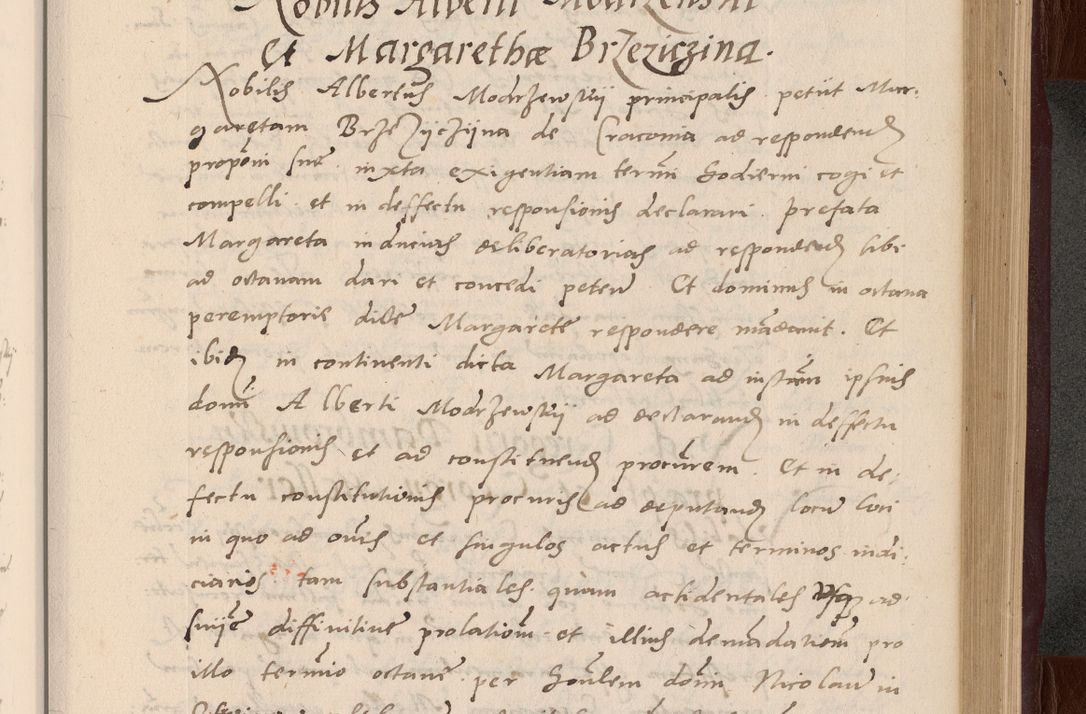 Nobilis Alberti Modrzewski
Et Margarethæ Brzeziczina.
Nobilis Albertus Modrzewskij principalis petiit Mar:
garetam Brzezijczijna de Cracouia ad respondend
proponi sue iuxta exigentiam termi hodierni cogi et
compelli et in deffectu responsionis declarari Prefata
Margareta inducias deliberatorias ad respondend sibi
ad octauam dari et concedi peteu Et dominus in octaua
peremptorie dicte Margarete respondere mādauit. Et
ibid in continenti dicta Margareta ad instān ipsius
domi Alberti Modrzewskij ad declarand in deffectu
responsionis et ad constituend procurem Et in de:
fectu constitutionis procuris ad deputand locu loci
in quo ad oues et singulos actus et terminos iudi:
ciarios tam substantiales quam accidentales vsq ad
snije diffinitiue prolationem et illius demādationem pro
illo termio octaue per honlem domi Nicolaum in